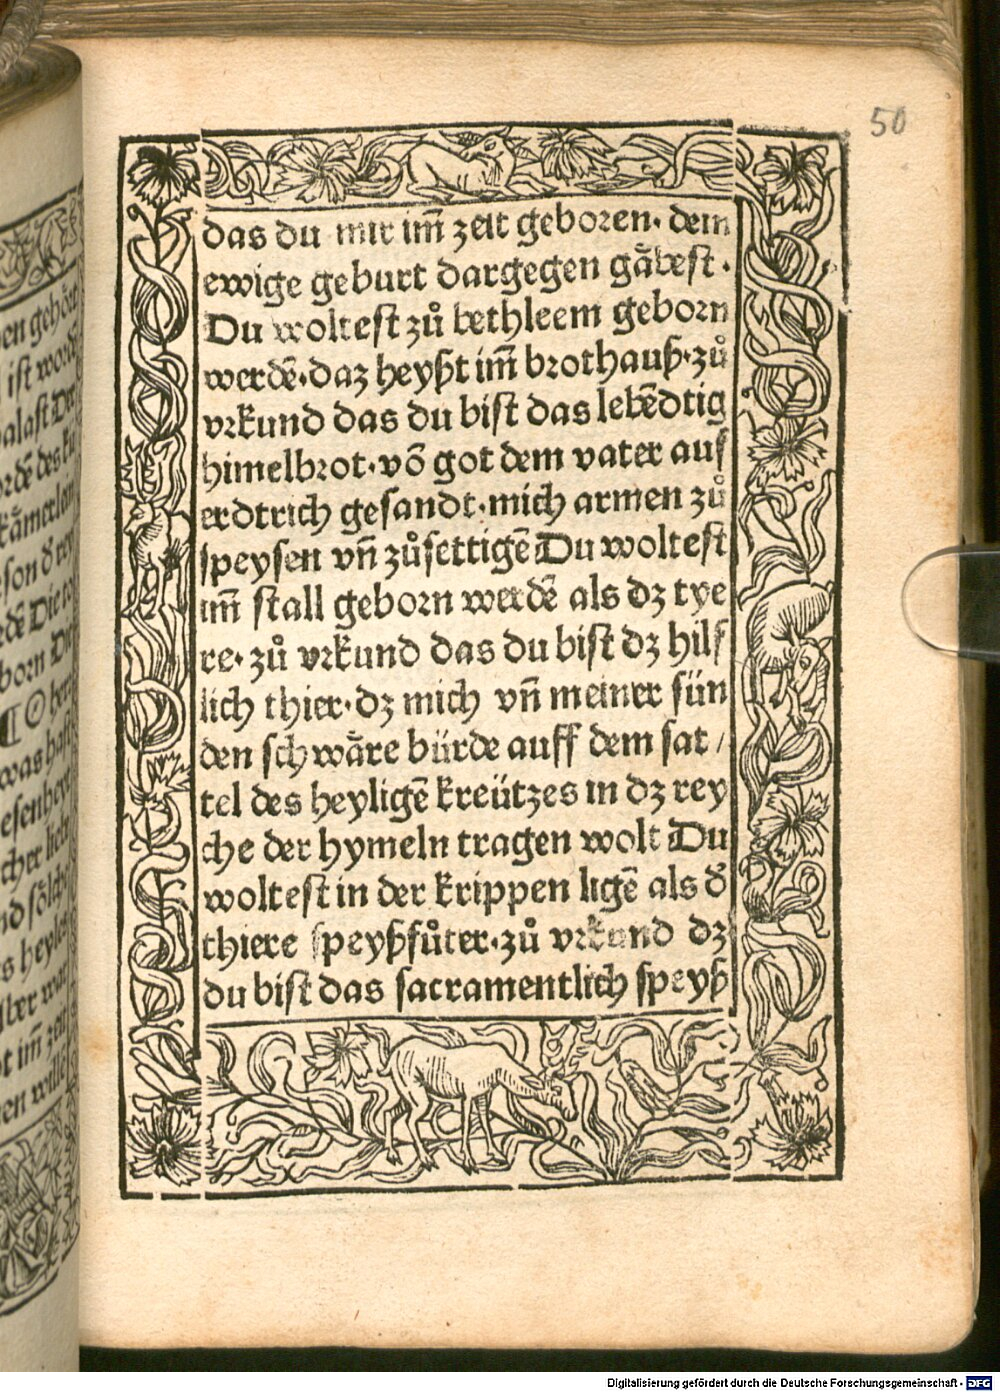 50
das du mir im̃ zeit geboren· dem
ewige geburt dargegen gaͤbest·
Du woltest zuͦ bethleem geborn
werdẽ·daz heyßt im̃ brothauß·zuͦ
vrkund das du bist das lebẽdtig
himelbrot·võ got dem vater auf
erdtrich gesandt·mich armen zuͦ
speysen vñ zuͦsettigẽ Du woltest
im̃ stall geborn werdẽ als dz tye
re·zuͦ vrkund das du bist dz hilf
lich thier·dz mich vñ meiner sün
den schwaͤre bürde auff dem sat/
tel des heyligẽ kreützes in dz rey
che der hymeln tragen wolt Du
woltest in der krippen ligẽ als d̃
thiere speyßfuͦter·zuͦ vrkund dz
du bist das sacramentlich speyß
Digitalisierung gefördert durch die Deutsche Forschungsgemeinschaft - DFG